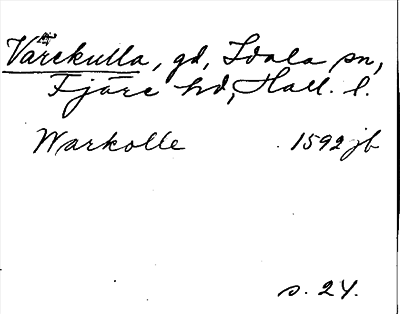 Varekulla, gd, Idala sn,
Fjäre hd, Hall. l.
Warkolle 1592 jb
s. 24.